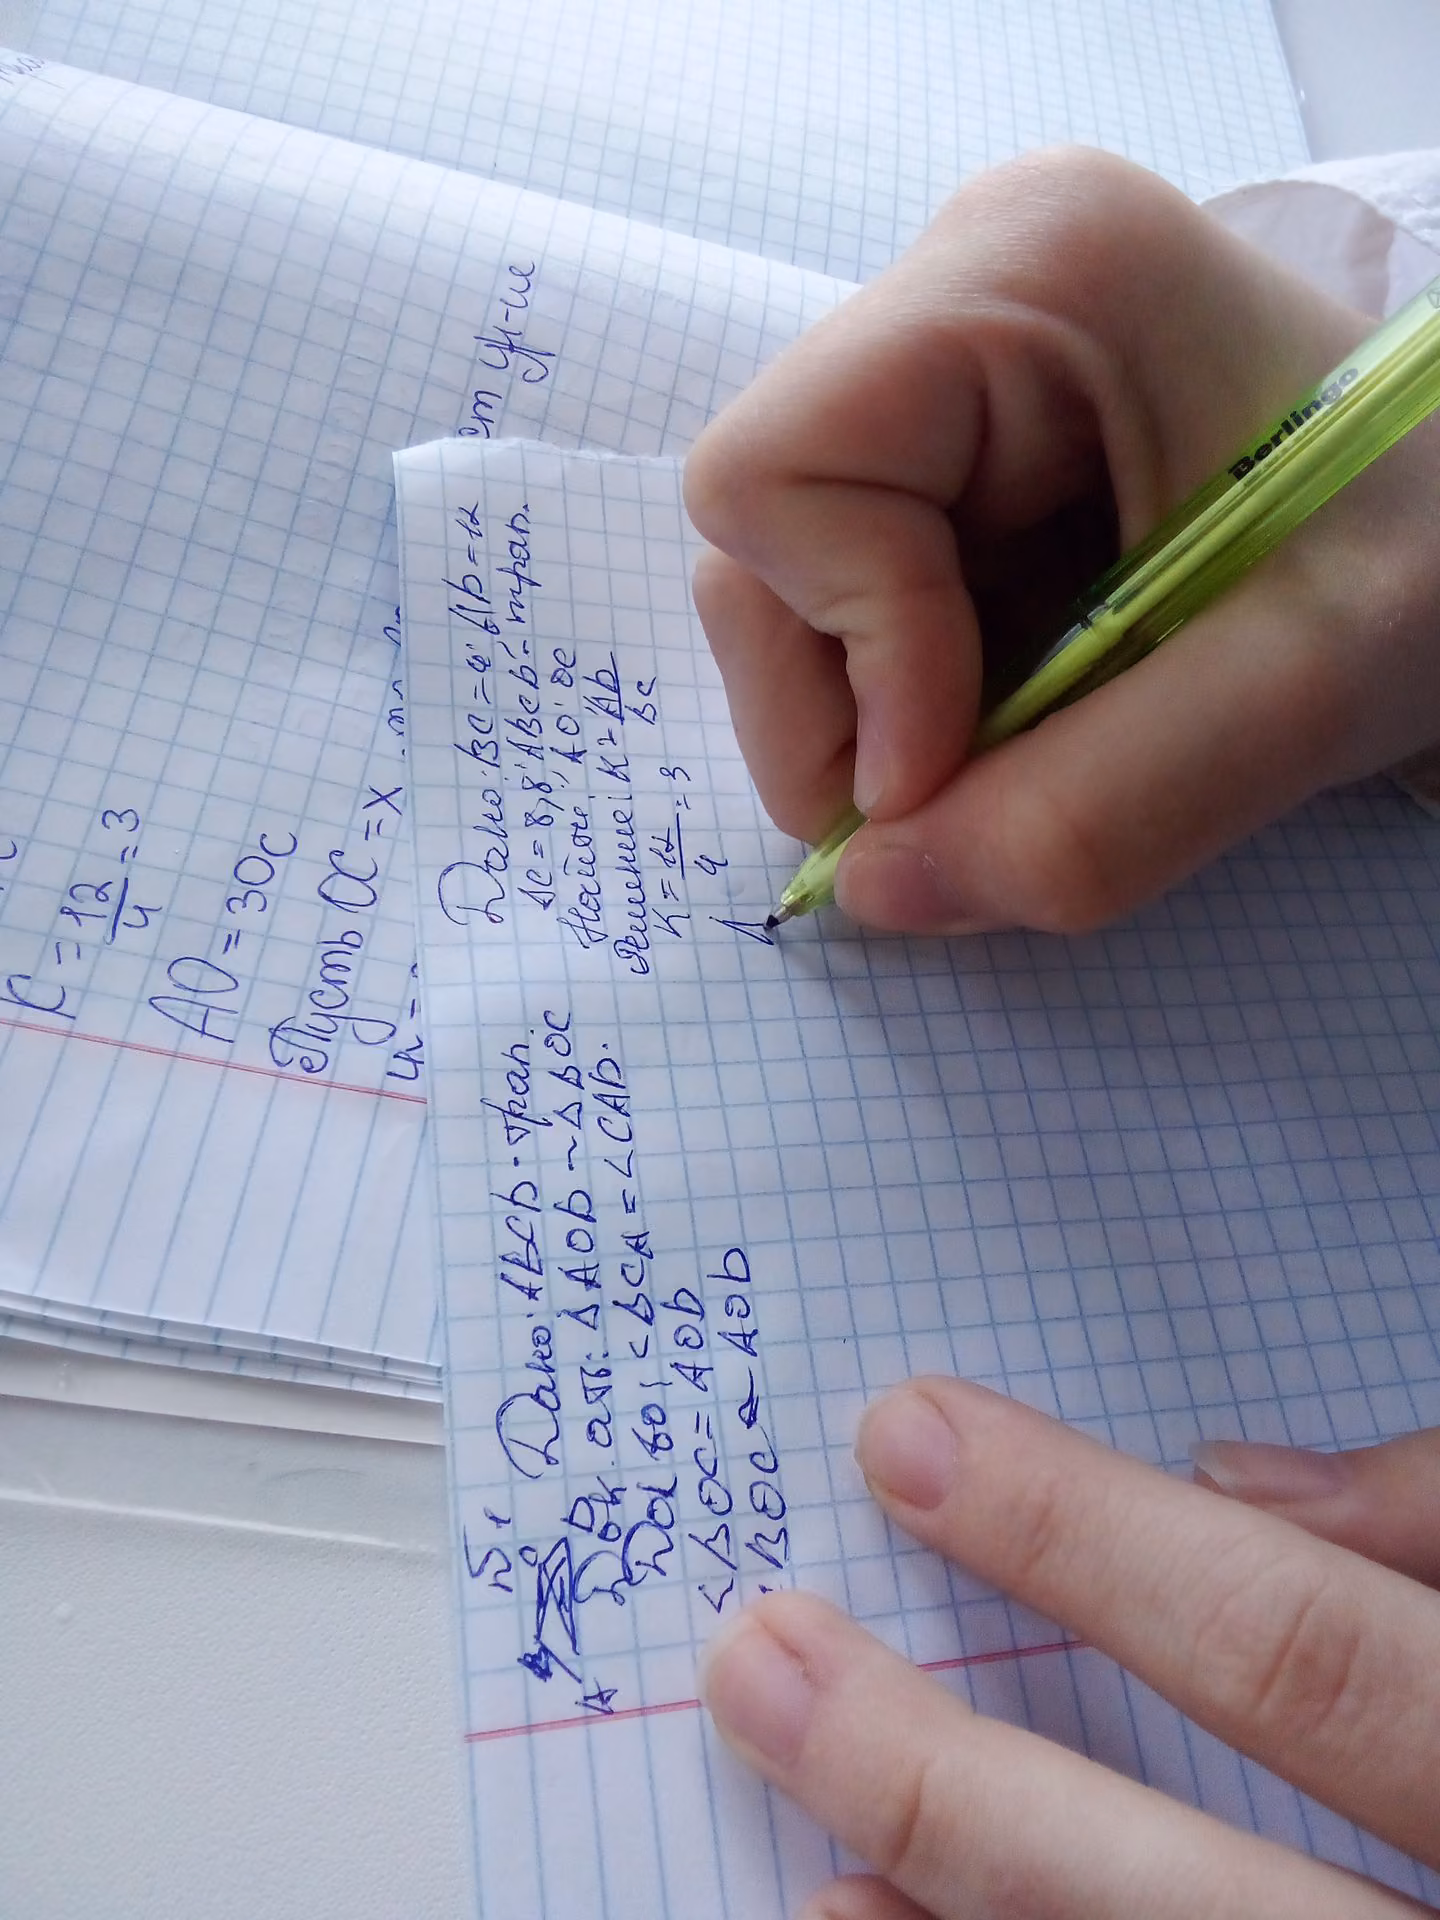 K = 12/4 = 3
AO = 3OC
Пусть OC = x
ур-ие
№1
Дано: ABCD - трап.
Док. ать: Δ AOD ~ Δ BOC
Док во: <BCA = <CAD.
<BOC = AOD
BOC ~ AOD
A
D
O
Дано: BC = 4; AD = 12
AC = 8,8; ABCD - трап.
Найти: AO; OC
Решение: K = AD/BC
K = 12/4 = 3
Berlingo